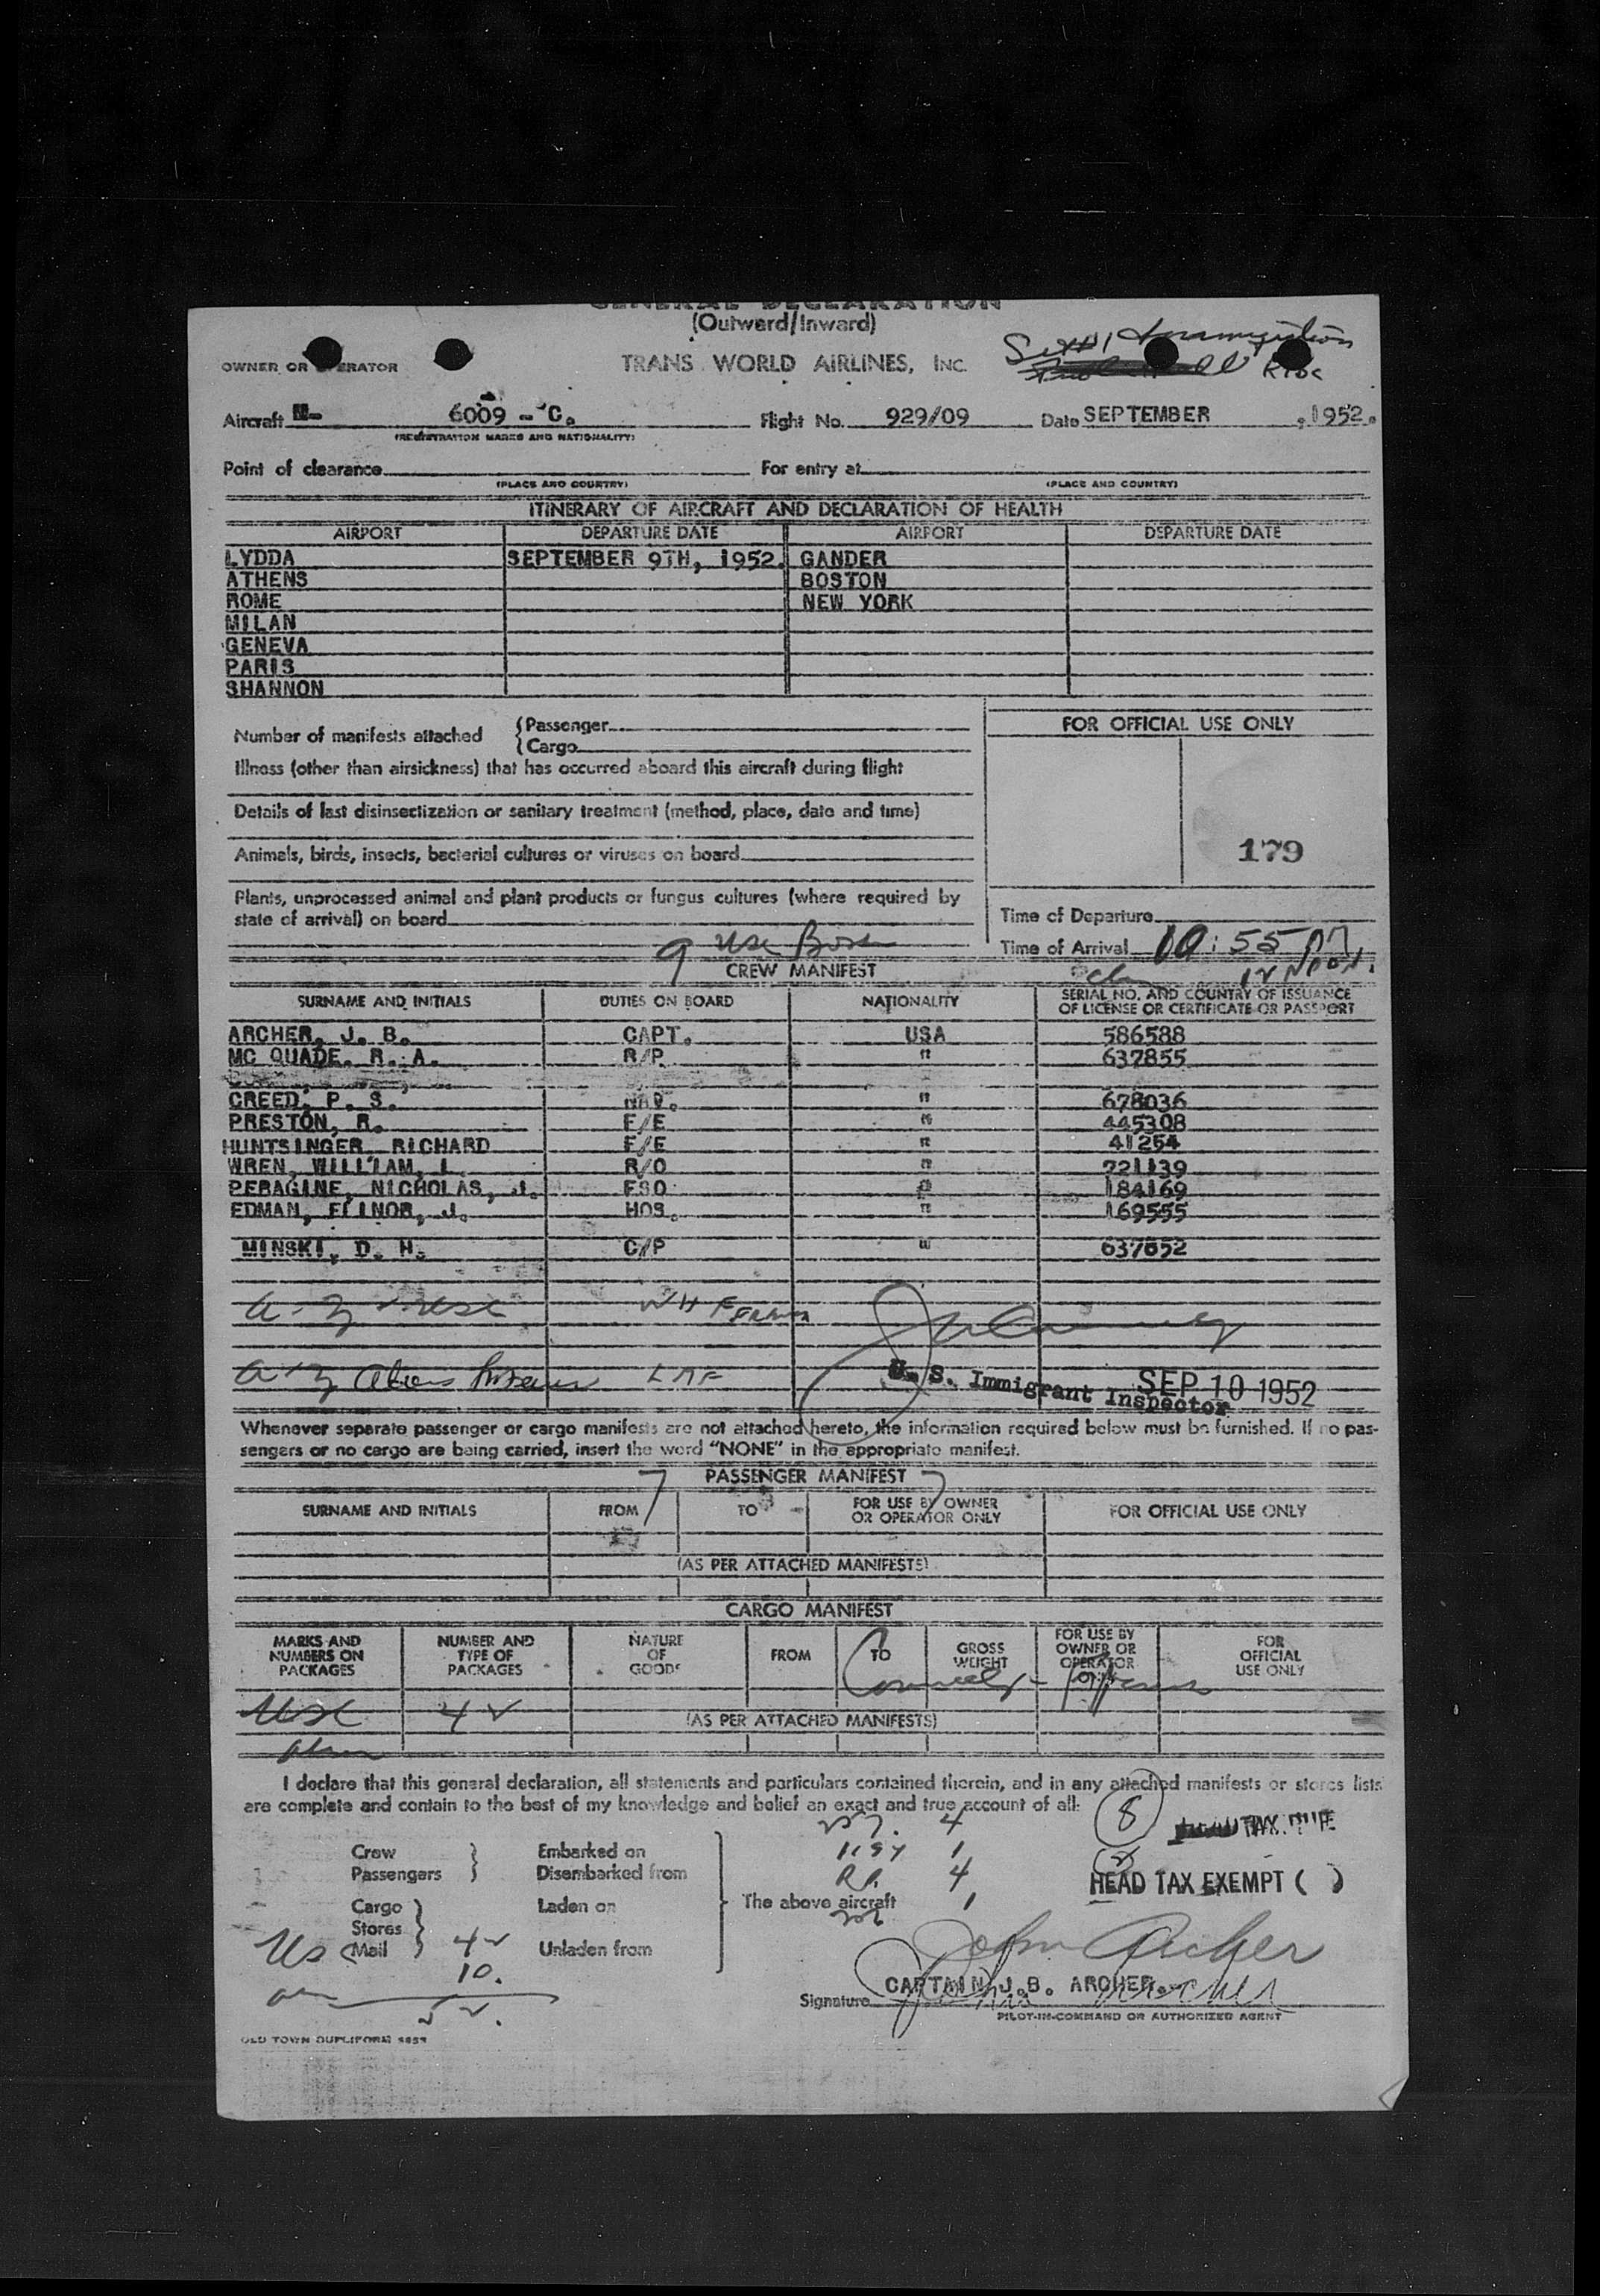 GENERAL DECLARATION
(Outward/Inward)
OWNER OR OPERATOR TRANS WORLD AIRLINES, INC.
Aircraft N- 6009 - C. Flight No. 929/09 Date SEPTEMBER , 1952.
(REGISTRATION MARKS AND NATIONALITY)
Point of clearance For entry at
(PLACE AND COUNTRY) (PLACE AND COUNTRY)
ITINERARY OF AIRCRAFT AND DECLARATION OF HEALTH
AIRPORT DEPARTURE DATE AIRPORT DEPARTURE DATE
LYDDA SEPTEMBER 9TH, 1952. GANDER
ATHENS BOSTON
ROME NEW YORK
MILAN
GENEVA
PARIS
SHANNON
Number of manifests attached { Passenger
{ Cargo
FOR OFFICIAL USE ONLY
Illness (other than airsickness) that has occurred aboard this aircraft during flight
Details of last disinsectization or sanitary treatment (method, place, date and time)
Animals, birds, insects, bacterial cultures or viruses on board
179
Plants, unprocessed animal and plant products or fungus cultures (where required by
state of arrival) on board
Time of Departure
Time of Arrival 10:55 PM
9 USC Bos
CREW MANIFEST
SURNAME AND INITIALS DUTIES ON BOARD NATIONALITY SERIAL NO. AND COUNTRY OF ISSUANCE
OF LICENSE OR CERTIFICATE OR PASSPORT
ARCHER, J. B. CAPT. USA 586588
MC QUADE, R. A. R/P " 637855
CREED, P. S. NAV. " 678036
PRESTON, R. F/E " 445308
HUNTSINGER RICHARD F/E " 41254
WREN, WILLIAM, L. R/O " 721139
PERAGINE, NICHOLAS, J. FSO " 184169
EDMAN, ELINOR, J. HOS. " 169555
MINSKI, D. H. C/P " 637652
U. S. Immigrant Inspector
SEP 10 1952
Whenever separate passenger or cargo manifests are not attached hereto, the information required below must be furnished. If no pas-
sengers or no cargo are being carried, insert the word "NONE" in the appropriate manifest.
PASSENGER MANIFEST
SURNAME AND INITIALS FROM TO FOR USE BY OWNER
OR OPERATOR ONLY FOR OFFICIAL USE ONLY
(AS PER ATTACHED MANIFESTS)
CARGO MANIFEST
MARKS AND
NUMBERS ON
PACKAGES NUMBER AND
TYPE OF
PACKAGES NATURE
OF
GOODS FROM TO GROSS
WEIGHT FOR USE BY
OWNER OR
OPERATOR
ONLY FOR
OFFICIAL
USE ONLY
USC 42
(AS PER ATTACHED MANIFESTS)
I declare that this general declaration, all statements and particulars contained therein, and in any attached manifests or stores lists
are complete and contain to the best of my knowledge and belief an exact and true account of all:
8 HEAD TAX DUE
4
Crew } Embarked on 1
Passengers } Disembarked from 4
HEAD TAX EXEMPT ( )
Cargo } Laden on The above aircraft 1
Stores }
Mail } Unladen from
42
10.
52.
John Archer
CAPTAIN J.B. ARCHER.
Signature
PILOT-IN-COMMAND OR AUTHORIZED AGENT
OLD TOWN DUPLIFORM